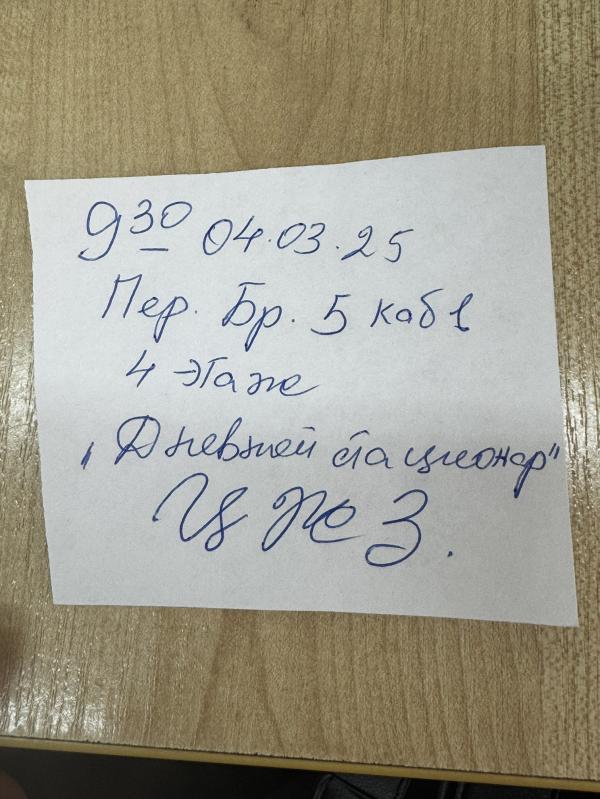 9 30 04.03.25
Пер. Бр. 5 каб 1
4 этаже
"Дневной стационар"
ЦЖЗ.